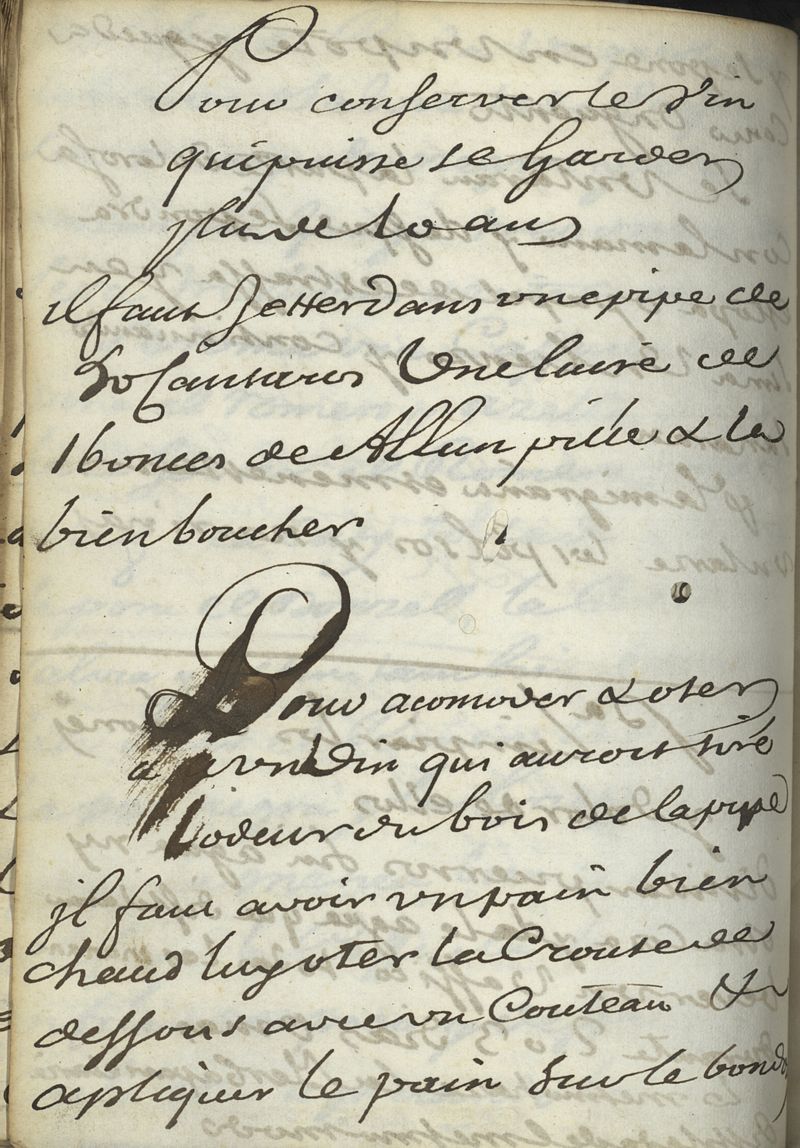 Pour conserver le Vin
qui puisse se Garder
plus de 10 ans
il faut Jetter dans une pipe de
Cantaros Une livre de
16 onces de Allun pille & la
bien boucher
Pour acomoder & oter
a un Vin qui auroit tiré
L'odeur du bois de la pipe
il faut avoir un pain bien
chaud luy oter la Croute de
dessous avec un Couteau &
apliquer le pain sur le bond